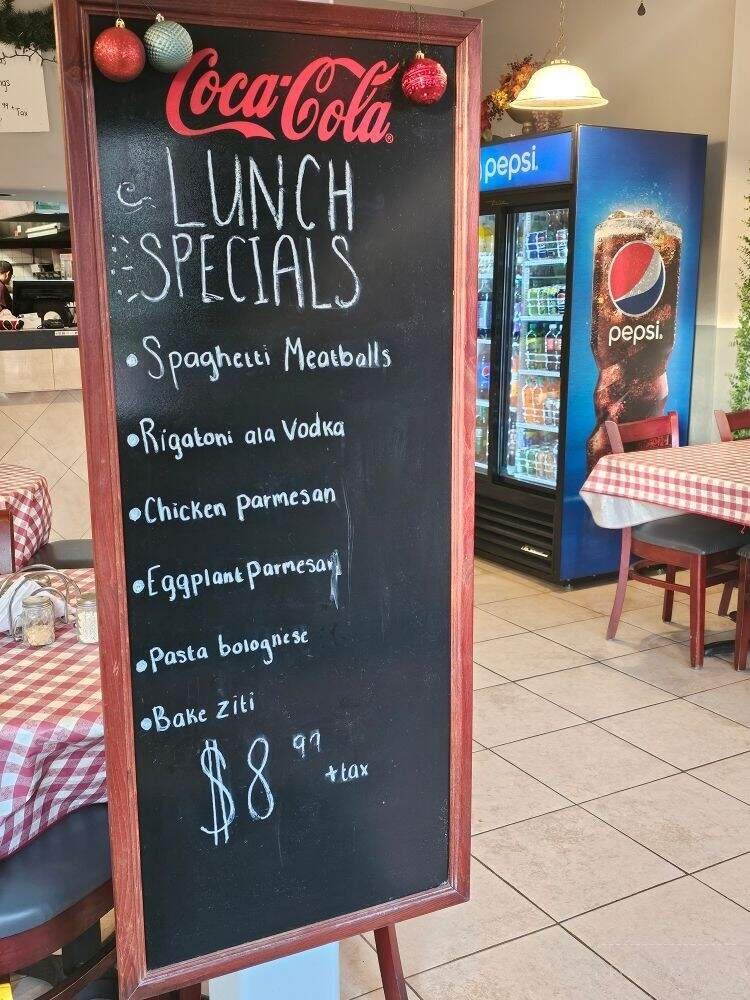 Coca-Cola
LUNCH
SPECIALS
• Spaghetti Meatballs
• Rigatoni ala Vodka
• Chicken parmesan
• Eggplant Parmesan
• Pasta bolognese
• Bake Ziti
$8 99
+tax
pepsi
pepsi
99 + Tax